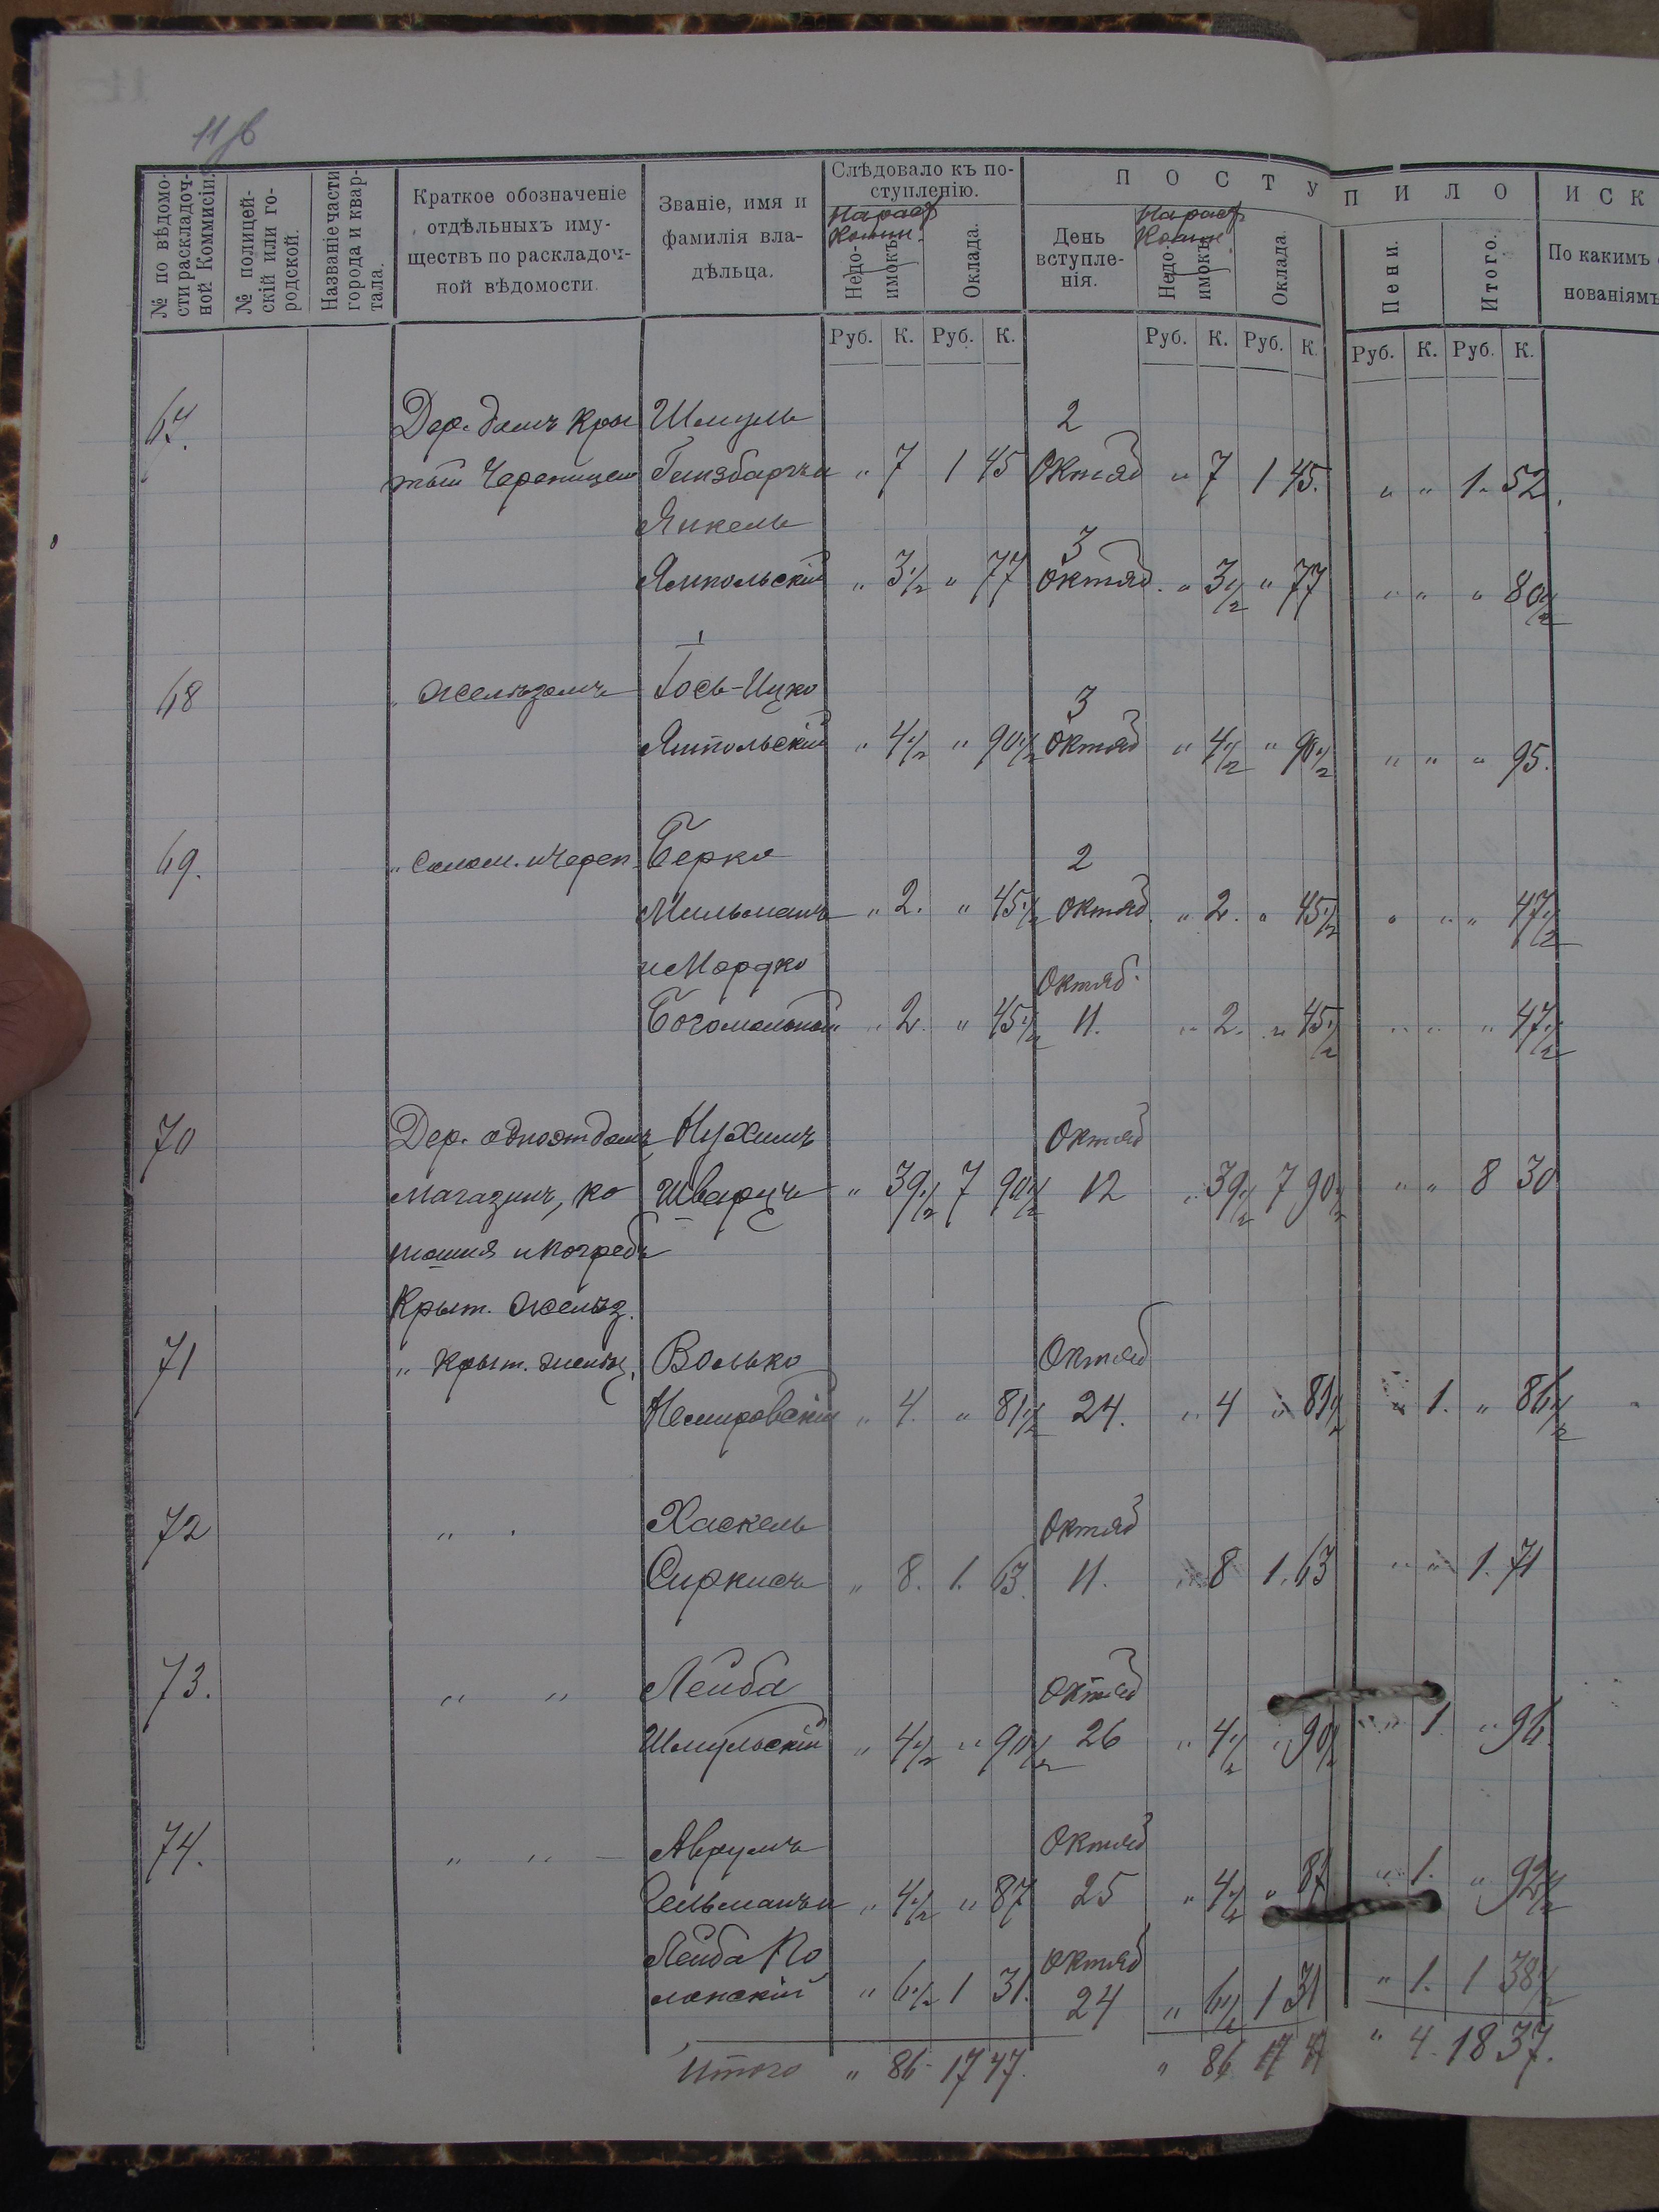 11 об
№ по вѣдомости раскладочной Коммисіи.
№ полицейскій или городской.
Названіе части города и квартала.
Краткое обозначеніе отдѣльныхъ имуществъ по раскладочной вѣдомости.
Званіе, имя и фамилія владѣльца.
Слѣдовало къ поступленію.
На расх Комм.
Недоимокъ
Оклада.
П О С Т У П И Л О
День вступленія.
На расх Комм.
Недоимокъ
Оклада.
Пени.
Итого.
И С К
По какимъ
нованіямъ
Руб. К. Руб. К. Руб. К. Руб. К. Руб. К. Руб. К.
67. Дер. домъ кры Шмуль 2
тый черепицею Гинзбаргъ и „ 7 1 45 Октяб „ 7 1 45. „ „ 1. 52.
Янкель 3
Ямпольскій „ 3½ „ 77 октяб. „ 3½ „ 77 „ „ „ 80½
68 „ желѣзомъ Іось-Ицко 3
Ямпольскій „ 4½ „ 90½ октяб „ 4½ „ 90½ „ „ „ 95.
69. „ Солом. и череп. Берко 2
Мильманъ „ 2. „ 45½ октяб. „ 2. „ 45½ „ „ „ 47½
и Мордко Октяб.
Богомольный „ 2. „ 45½ 11. „ 2. „ 45½ „ „ „ 47½
70 Дер. одноэт домъ Нухимъ Октяб
магазинъ, ко Шварцъ „ 39½ 7 90½ 12 „ 39½ 7 90½ „ „ 8 30
нюшня и погребъ
Крыт. желѣз.
71 „ крыт. желѣз. Волько Октяб
Немировскій „ 4. „ 81½ 24. „ 4 „ 81½ „ 1. „ 86½
72 „ „ Хаскель Октяб
Сиркисъ „ 8. 1. 63. 11. „ 8 1. 63 „ „ 1. 71
73. „ „ Лейба Октяб
Шмульскій „ 4½ „ 90½ 26 „ 4½ „ 90½ „ 1. „ 96
74. „ „ Аврумъ Октяб
Гельманъ и „ 4½ „ 87 25 „ 4½ „ 87 „ 1. „ 92½
Лейба По октяб
лонскій „ 6½ 1 31. 24 „ 6½ 1 31 „ 1. 1 38½
Итого „ 86 17 47. „ 86 17 47 „ 4. 18 37.